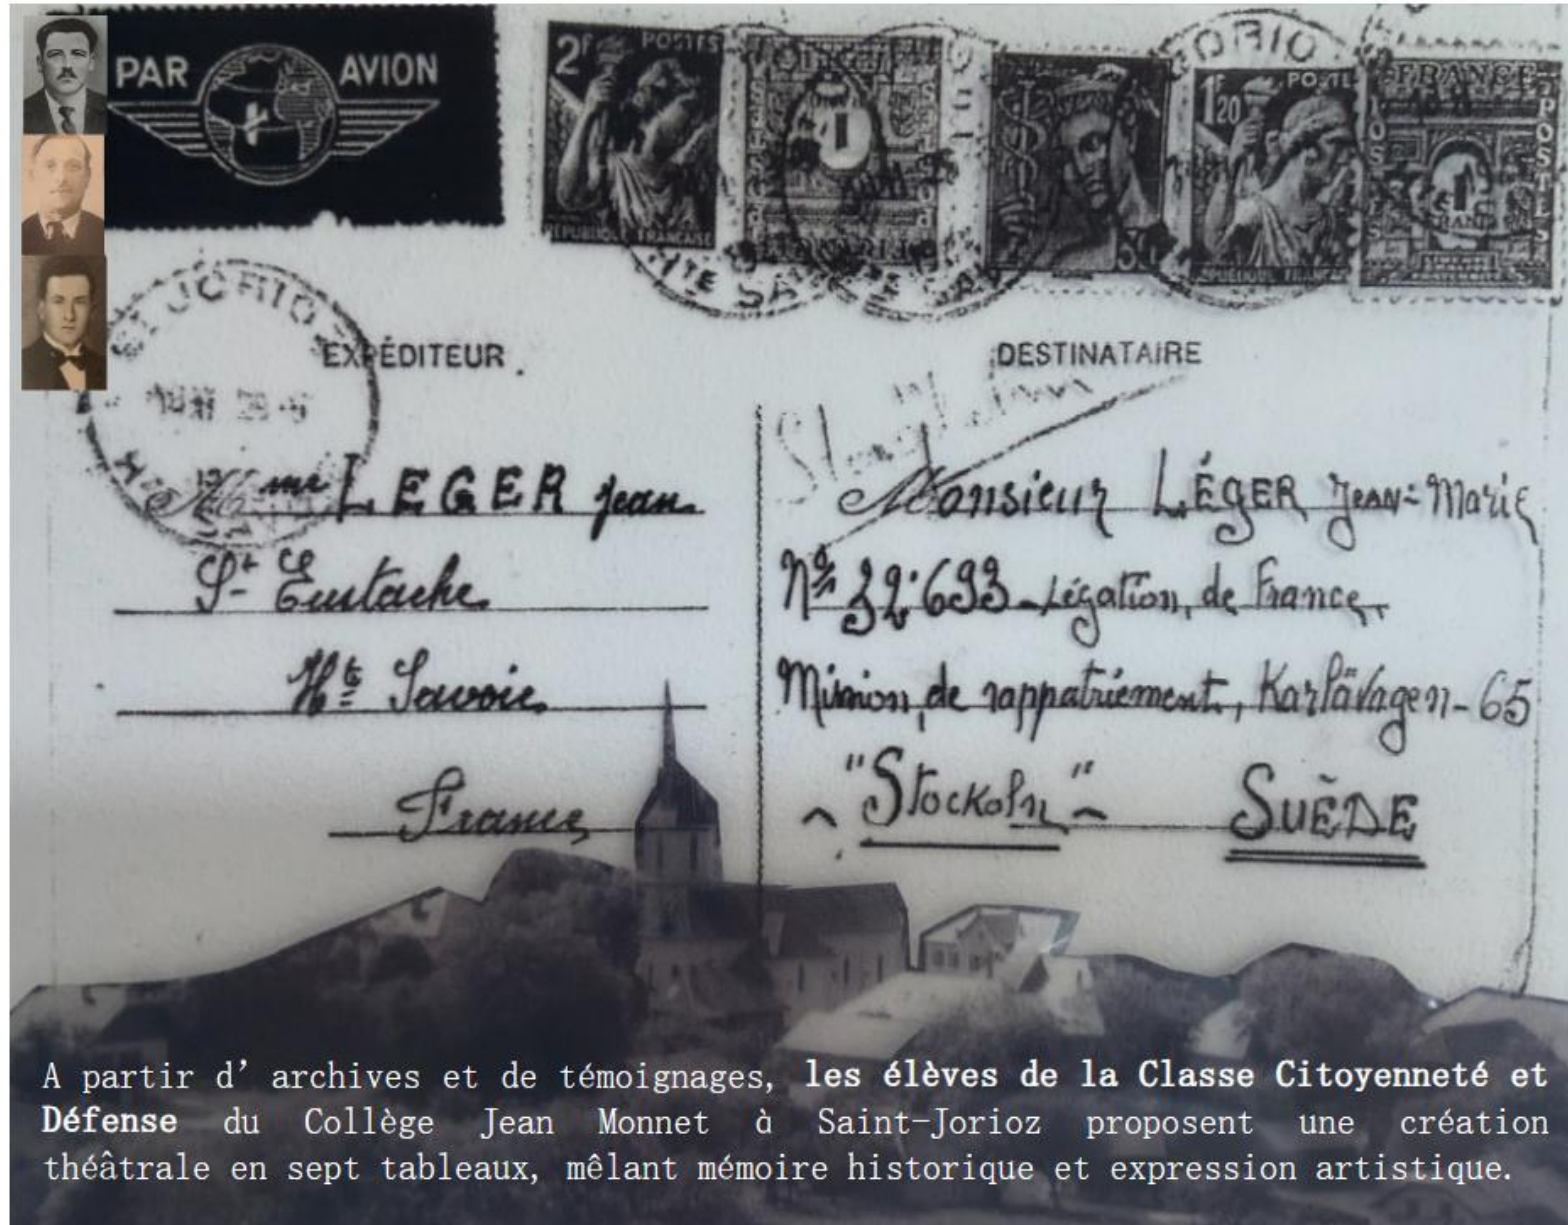 PAR AVION
2F POSTES
1,20 POSTE
FRANCE
POSTES
ST JORIOZ
EXPÉDITEUR
DESTINATAIRE
Mme LEGER Jean
St Eustache
Hte Savoie
France
Monsieur LÉGER JEAN-Marie
No 32.693 Légation de France
Mission de rappatriement, Karlävagen-65
"Stockoln" SUÈDE
A partir d'archives et de témoignages, les élèves de la Classe Citoyenneté et
Défense du Collège Jean Monnet à Saint-Jorioz proposent une création
théâtrale en sept tableaux, mêlant mémoire historique et expression artistique.